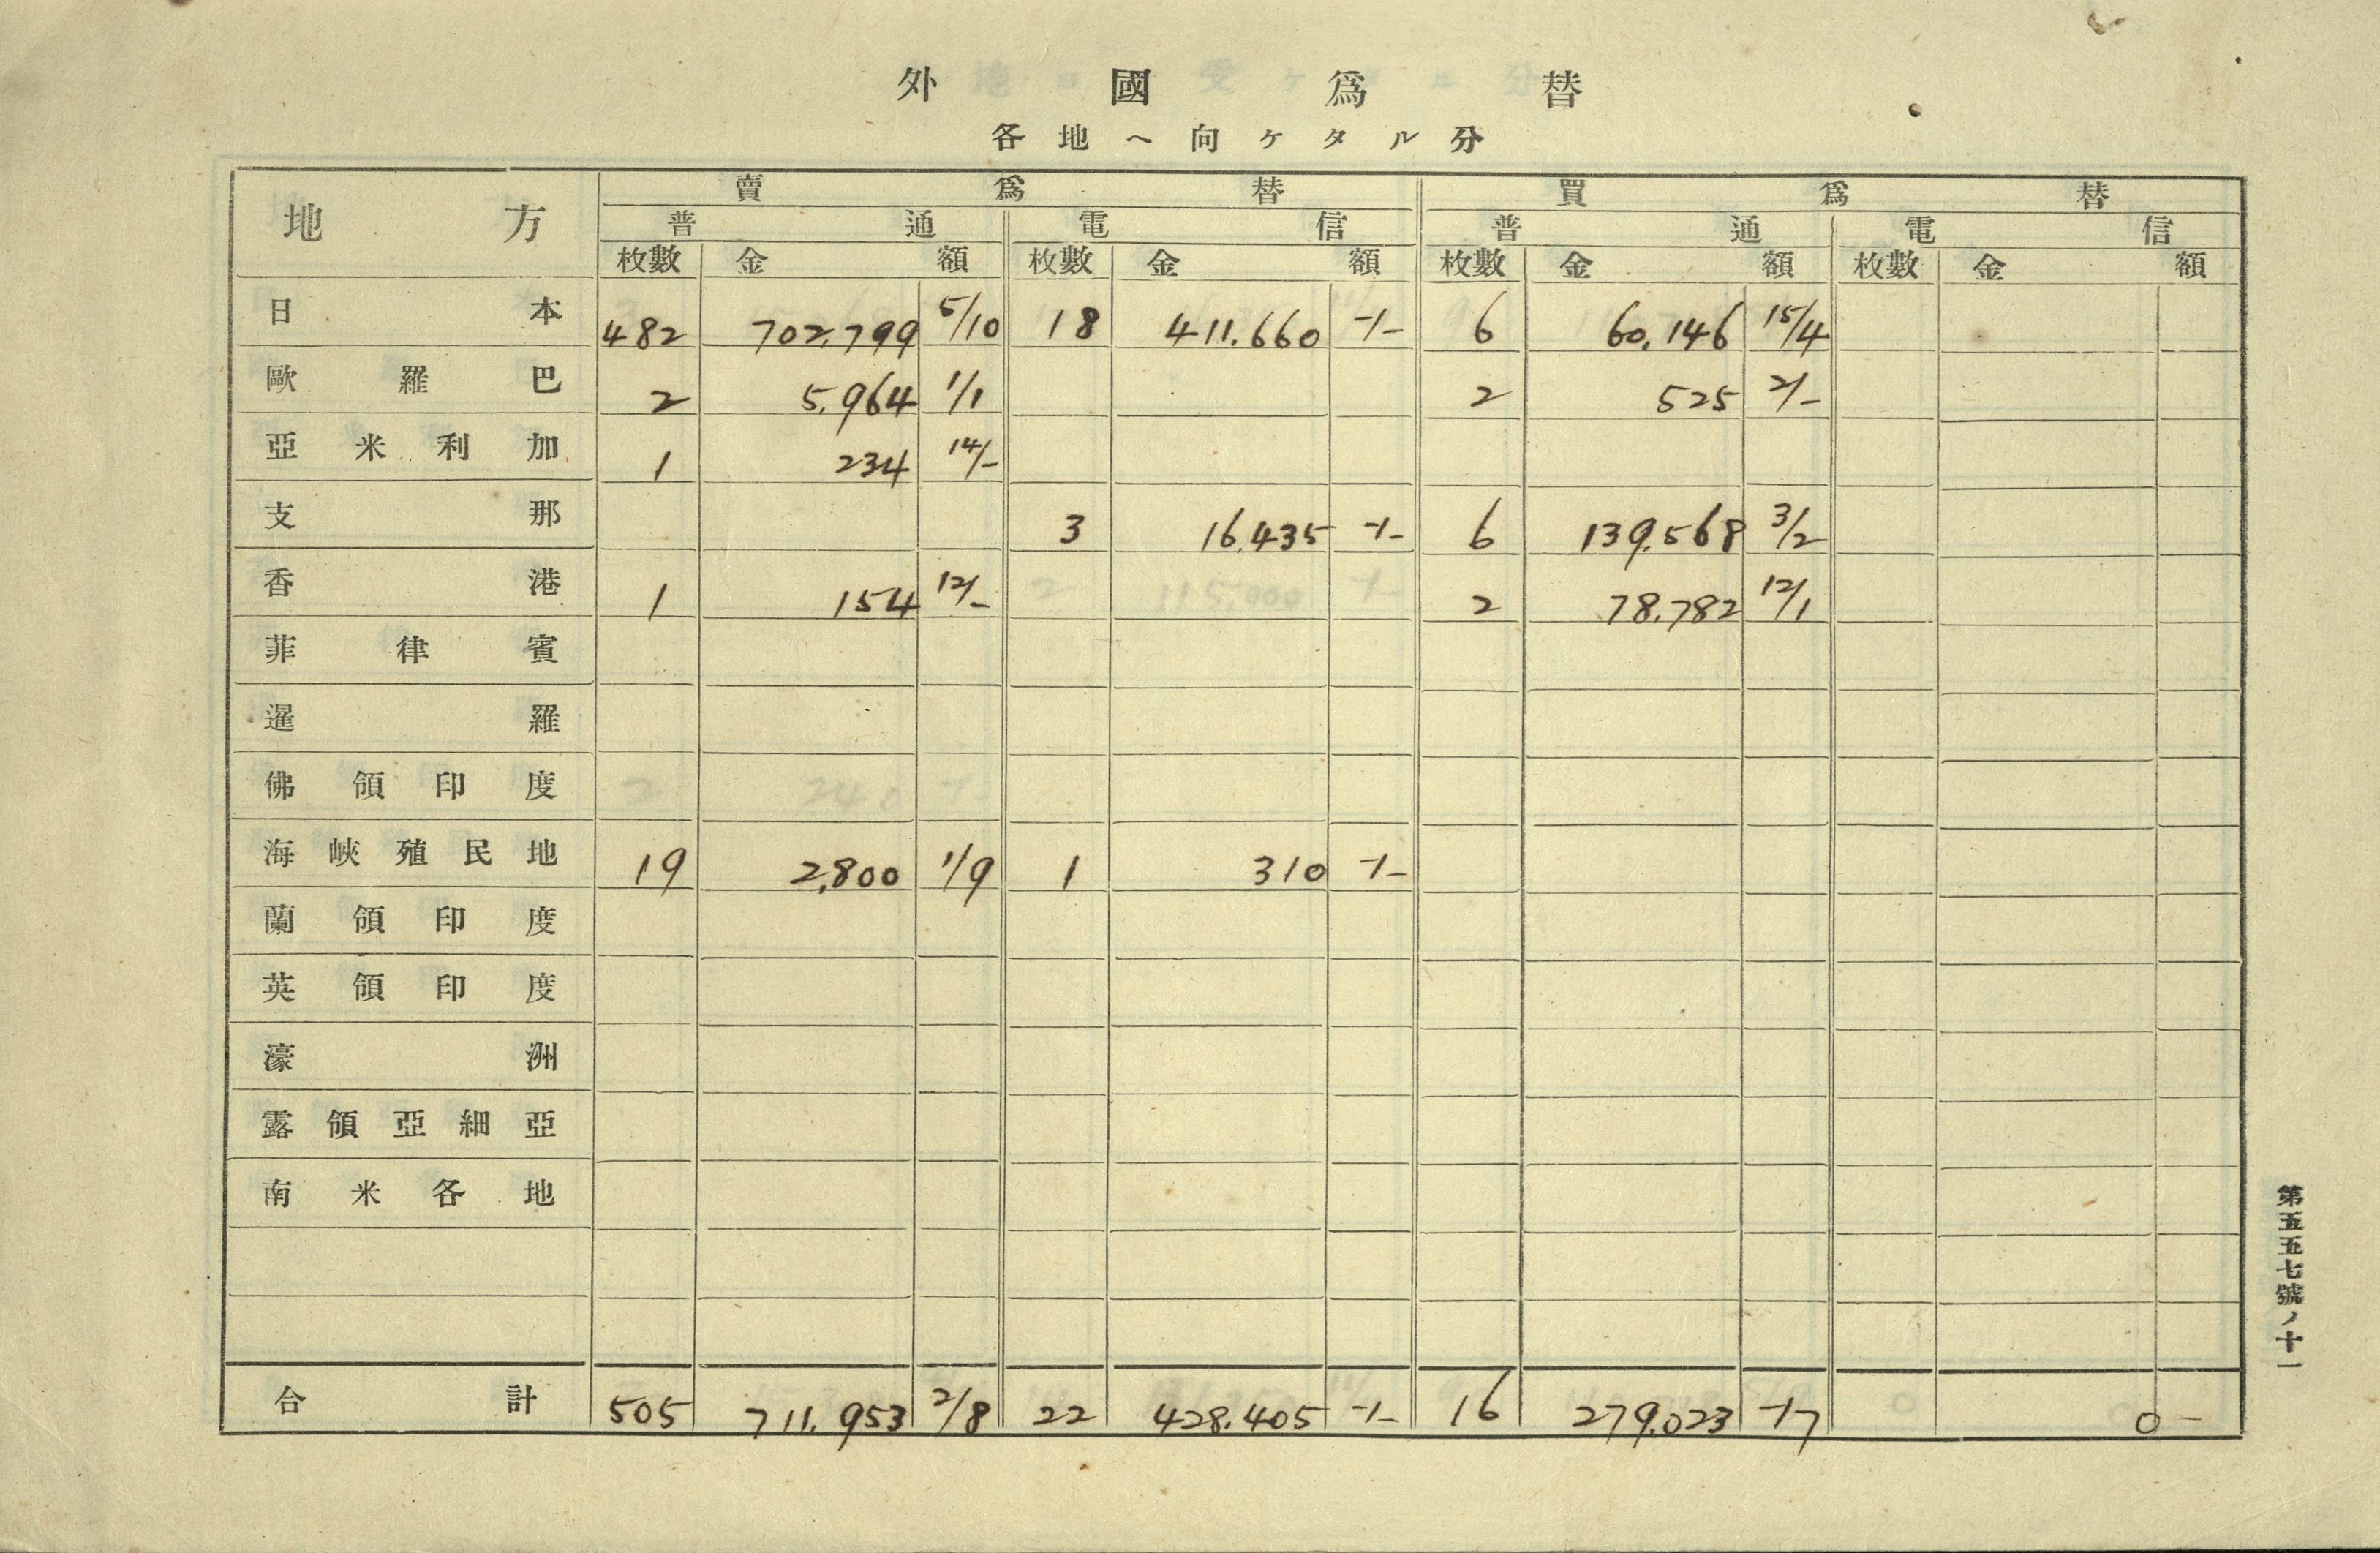 外國爲替
各地ヘ向ケタル分
地方 賣爲替 買爲替
普通 電信 普通 電信
枚數 金額 枚數 金額 枚數 金額 枚數 金額
日本 482 702,799 5/10 18 411.660 -/- 6 60.146 15/4
歐羅巴 2 5,964 1/1 2 525 2/-
亞米利加 1 234 14/-
支那 3 16.435 -/- 6 139.568 3/2
香港 1 154 12/- 2 78.782 12/1
菲律賓
暹羅
佛領印度
海峽殖民地 19 2,800 1/9 1 310 -/-
蘭領印度
英領印度
濠洲
露領亞細亞
南米各地
合計 505 711.953 2/8 22 428.405 -/- 16 279.023 -/7 0 -
第五五七號ノ十一